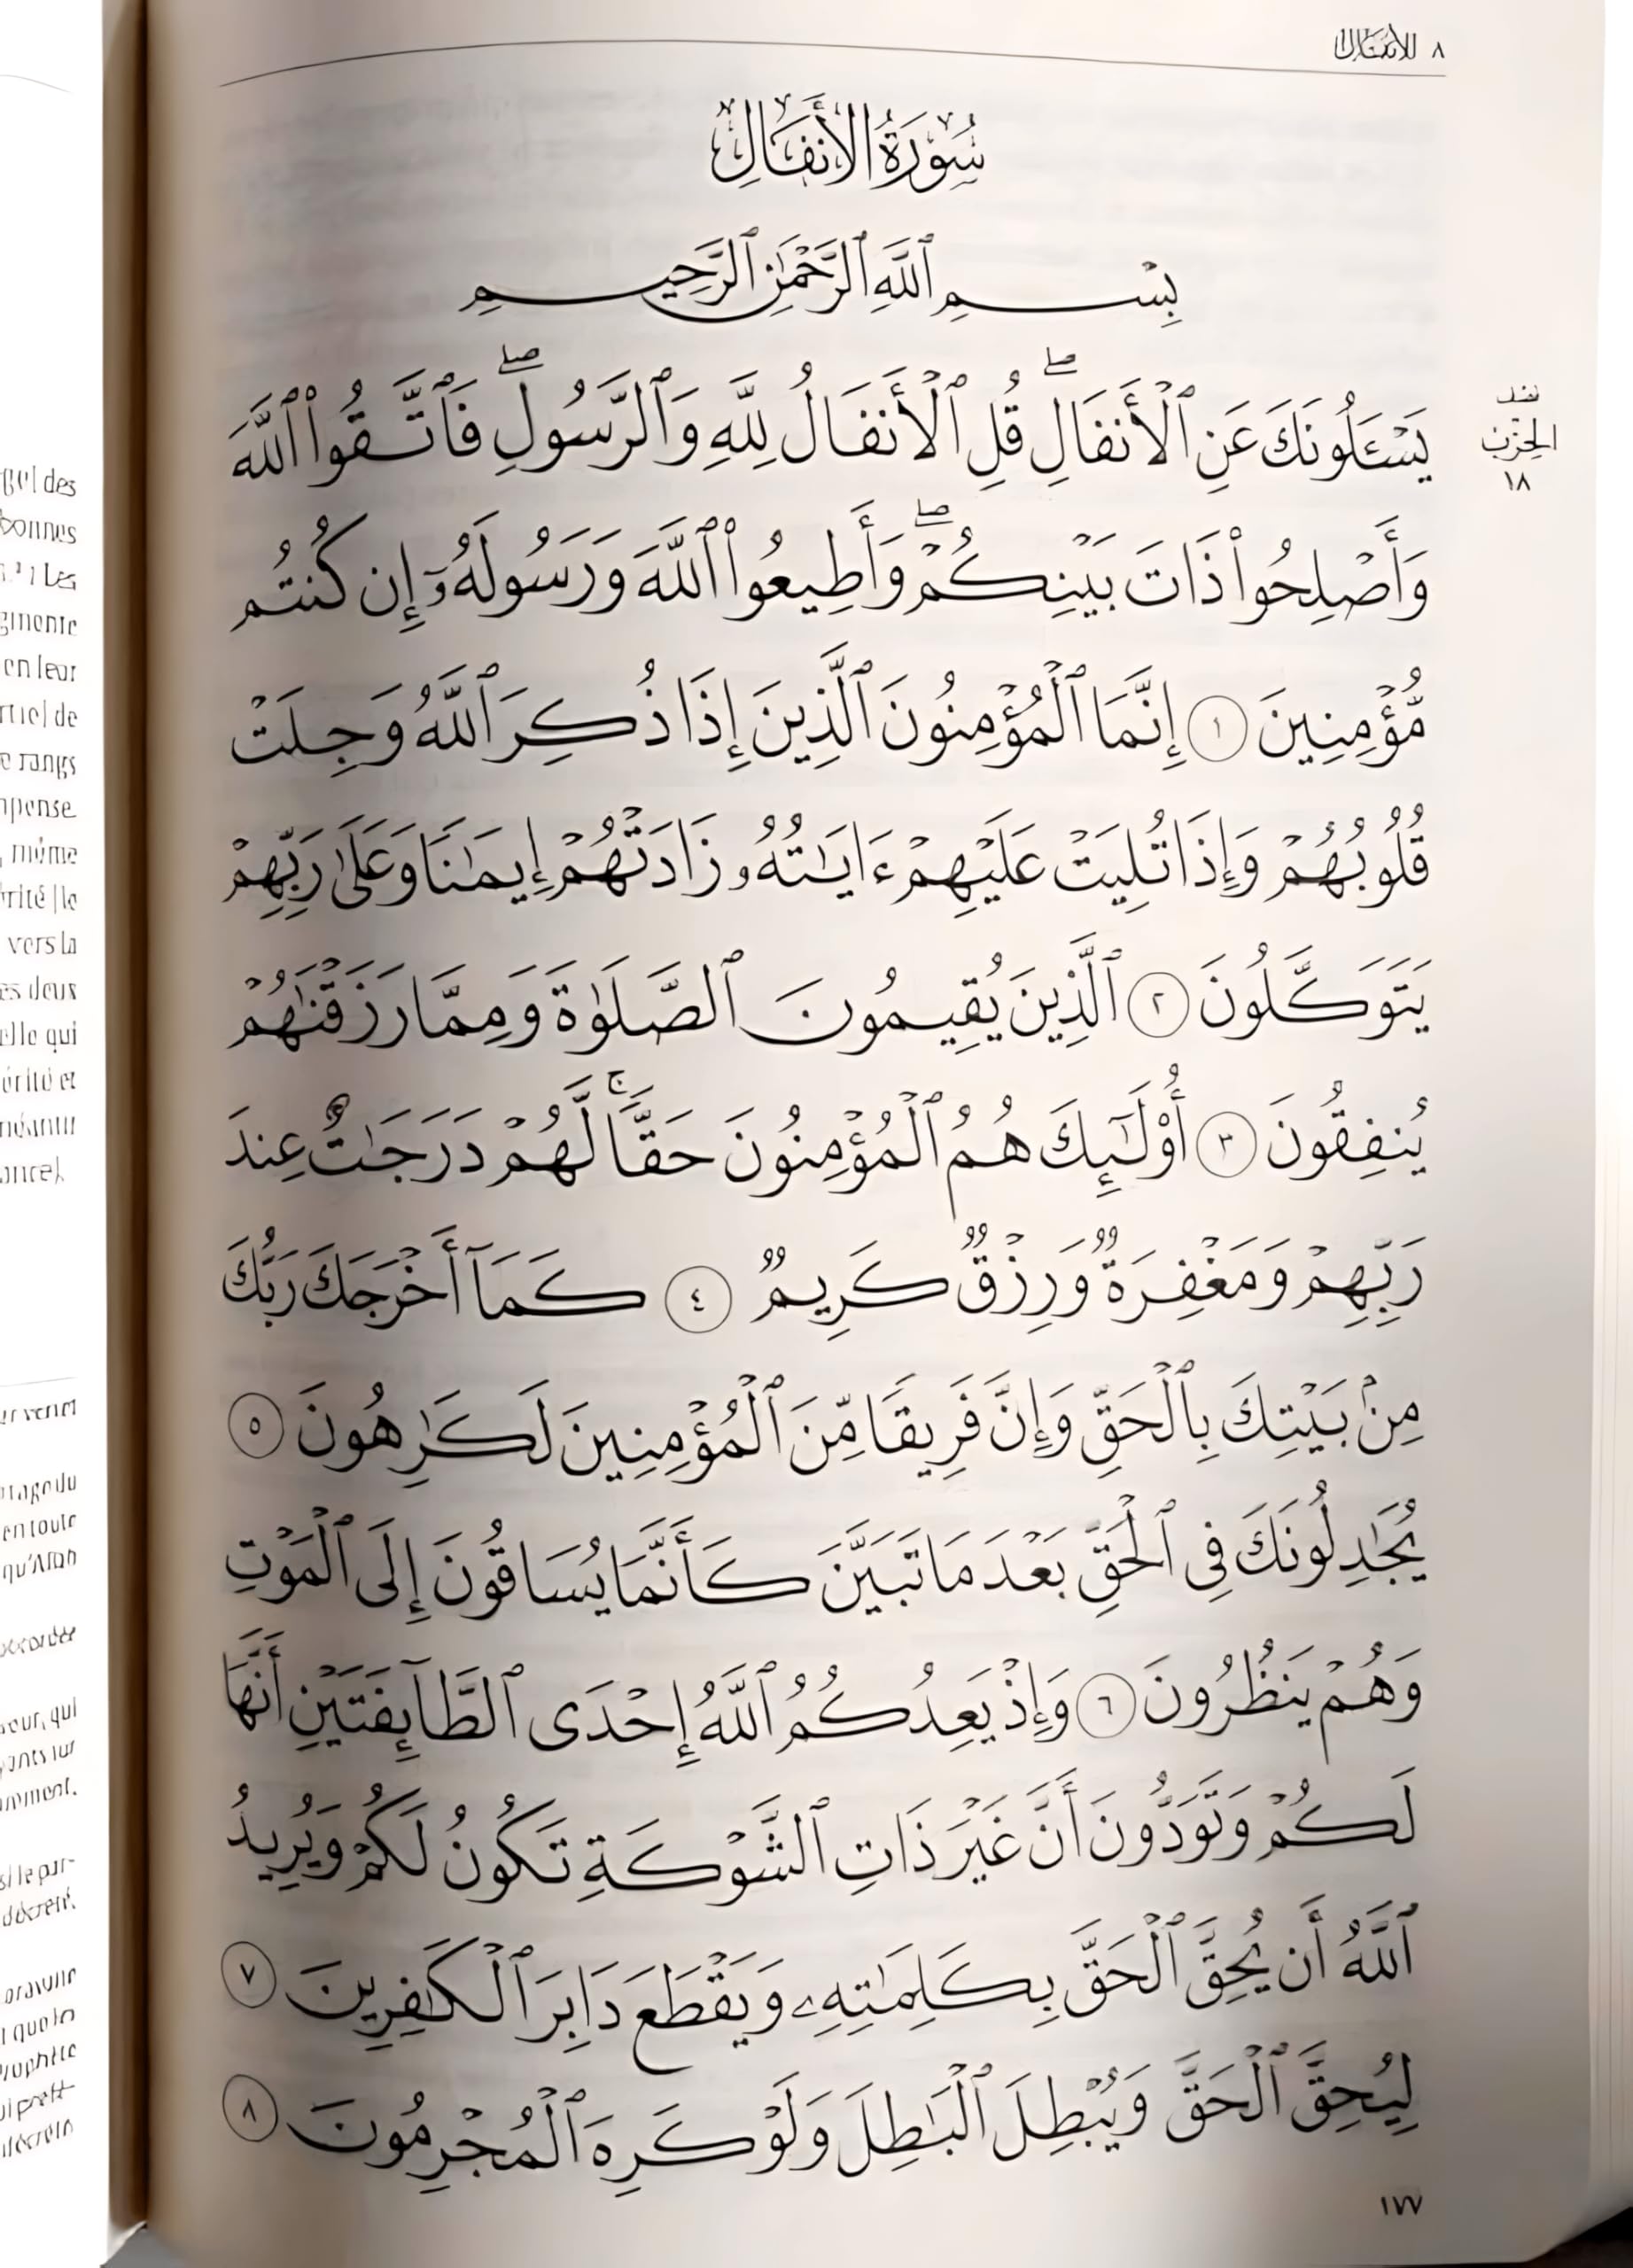 ٨ الأنفال
سُورَةُ الأَنفَالِ
بِسْمِ ٱللَّهِ ٱلرَّحْمَٰنِ ٱلرَّحِيمِ
يَسْـَٔلُونَكَ عَنِ ٱلْأَنفَالِ ۖ قُلِ ٱلْأَنفَالُ لِلَّهِ وَٱلرَّسُولِ ۖ فَٱتَّقُوا۟ ٱللَّهَ
وَأَصْلِحُوا۟ ذَاتَ بَيْنِكُمْ ۖ وَأَطِيعُوا۟ ٱللَّهَ وَرَسُولَهُۥٓ إِن كُنتُم
مُّؤْمِنِينَ ١ إِنَّمَا ٱلْمُؤْمِنُونَ ٱلَّذِينَ إِذَا ذُكِرَ ٱللَّهُ وَجِلَتْ
قُلُوبُهُمْ وَإِذَا تُلِيَتْ عَلَيْهِمْ ءَايَٰتُهُۥ زَادَتْهُمْ إِيمَٰنًا وَعَلَىٰ رَبِّهِمْ
يَتَوَكَّلُونَ ٢ ٱلَّذِينَ يُقِيمُونَ ٱلصَّلَوٰةَ وَمِمَّا رَزَقْنَٰهُمْ
يُنفِقُونَ ٣ أُو۟لَٰٓئِكَ هُمُ ٱلْمُؤْمِنُونَ حَقًّا ۚ لَّهُمْ دَرَجَٰتٌ عِندَ
رَبِّهِمْ وَمَغْفِرَةٌ وَرِزْقٌ كَرِيمٌ ٤ كَمَآ أَخْرَجَكَ رَبُّكَ
مِنۢ بَيْتِكَ بِٱلْحَقِّ وَإِنَّ فَرِيقًا مِّنَ ٱلْمُؤْمِنِينَ لَكَٰرِهُونَ ٥
يُجَٰدِلُونَكَ فِى ٱلْحَقِّ بَعْدَ مَا تَبَيَّنَ كَأَنَّمَا يُسَاقُونَ إِلَى ٱلْمَوْتِ
وَهُمْ يَنظُرُونَ ٦ وَإِذْ يَعِدُكُمُ ٱللَّهُ إِحْدَى ٱلطَّآئِفَتَيْنِ أَنَّهَا
لَكُمْ وَتَوَدُّونَ أَنَّ غَيْرَ ذَاتِ ٱلشَّوْكَةِ تَكُونُ لَكُمْ وَيُرِيدُ
ٱللَّهُ أَن يُحِقَّ ٱلْحَقَّ بِكَلِمَٰتِهِۦ وَيَقْطَعَ دَابِرَ ٱلْكَٰفِرِينَ ٧
لِيُحِقَّ ٱلْحَقَّ وَيُبْطِلَ ٱلْبَٰطِلَ وَلَوْ كَرِهَ ٱلْمُجْرِمُونَ ٨
١٧٧
نصف
الحِزْبِ
١٨
des
Les
en leur
de
rangs
même
vers la
deux
elle qui
et
en toute
qu'Allah
qui